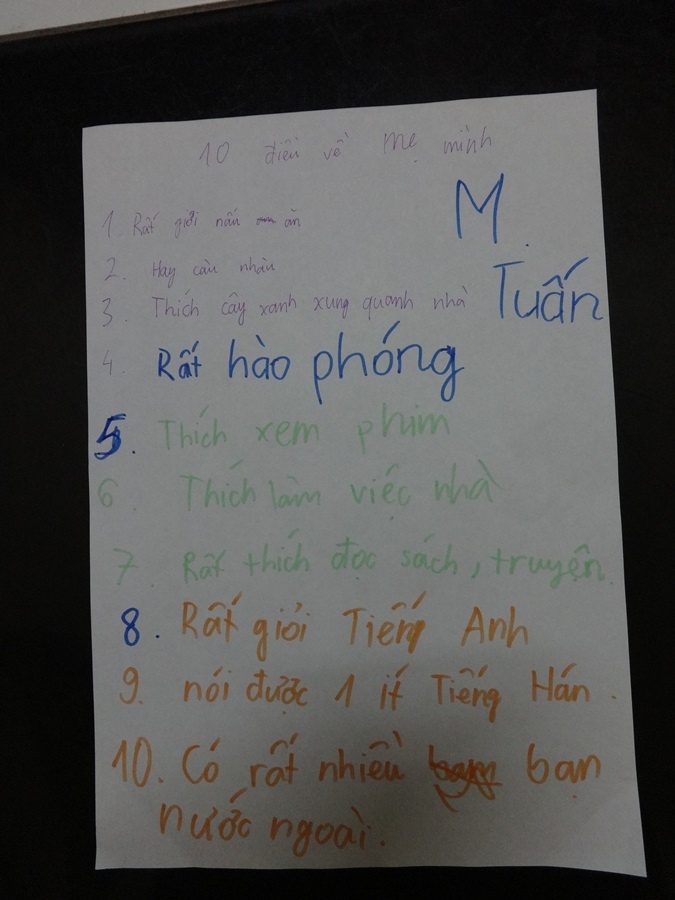 10 điều về mẹ mình
M.
1. Rất giỏi nấu ăn
2. Hay càu nhàu
Tuấn
3. Thích cây xanh xung quanh nhà
4. Rất hào phóng
5. Thích xem phim
6. Thích làm việc nhà
7. Rất thích đọc sách, truyện.
8. Rất giỏi Tiếng Anh
9. nói được 1 ít Tiếng Hán.
10. Có rất nhiều bạn
nước ngoài.